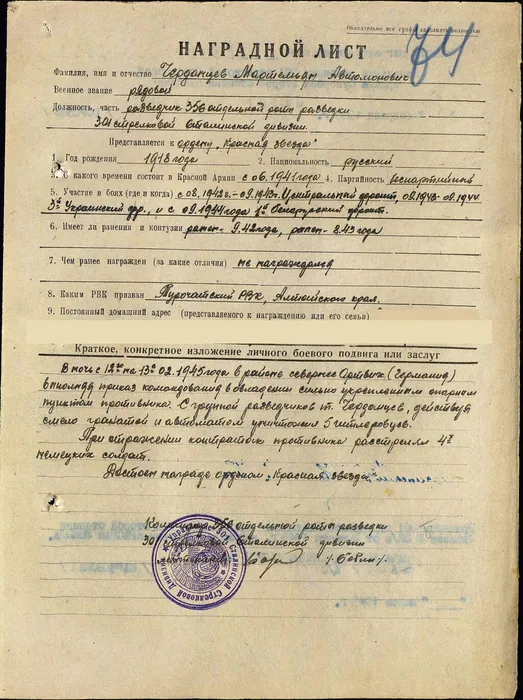 Обязательно все графы заполнять полностью
74
НАГРАДНОЙ ЛИСТ
Фамилия, имя и отчество Черданцев Мартемьян Автомонович
Военное звание рядовой
Должность, часть разведчик 356 отдельной роты разведки
301 стрелковой Сталинской дивизии.
Представляется к ордену „Красная звезда"
1. Год рождения 1918 года 2. Национальность русский
3. С какого времени состоит в Красной Армии с 06.1941 года 4. Партийность беспартийный
5. Участие в боях (где и когда) с 08.1942г. - 09.1943г. Центральный фронт, 09.1943-09.1944
3й Украинский фр., и с 09.1944 года 1й Белорусский фронт.
6. Имеет ли ранения и контузии ранен - 9.42 года, ранен - 8.43 года
7. Чем ранее награжден (за какие отличия) не награждался
8. Каким РВК призван Турочакский РВК, Алтайского края.
9. Постоянный домашний адрес (представляемого к награждению или его семьи)
Краткое, конкретное изложение личного боевого подвига или заслуг
В ночь с 12го на 13е 02.1945 года в районе севернее (Германия)
выполняя приказ командования в овладении сильно укрепленным опорным
пунктом противника. С группой разведчиков т. Черданцев, действуя
смело гранатой и автоматом уничтожил 5 гитлеровцев.
При отражении контратаки противника расстрелял 4х
немецких солдат.
Достоин награды орденом „Красная звезда"
Командир 356 отдельной роты разведки
301 стрелковой Сталинской дивизии